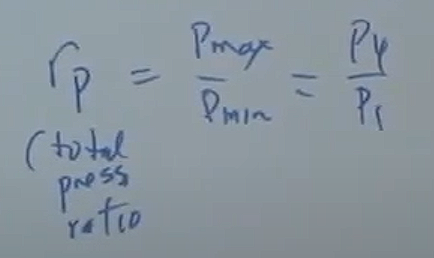 rp = Pmax/Pmin = P4/P1
(total
press
ratio